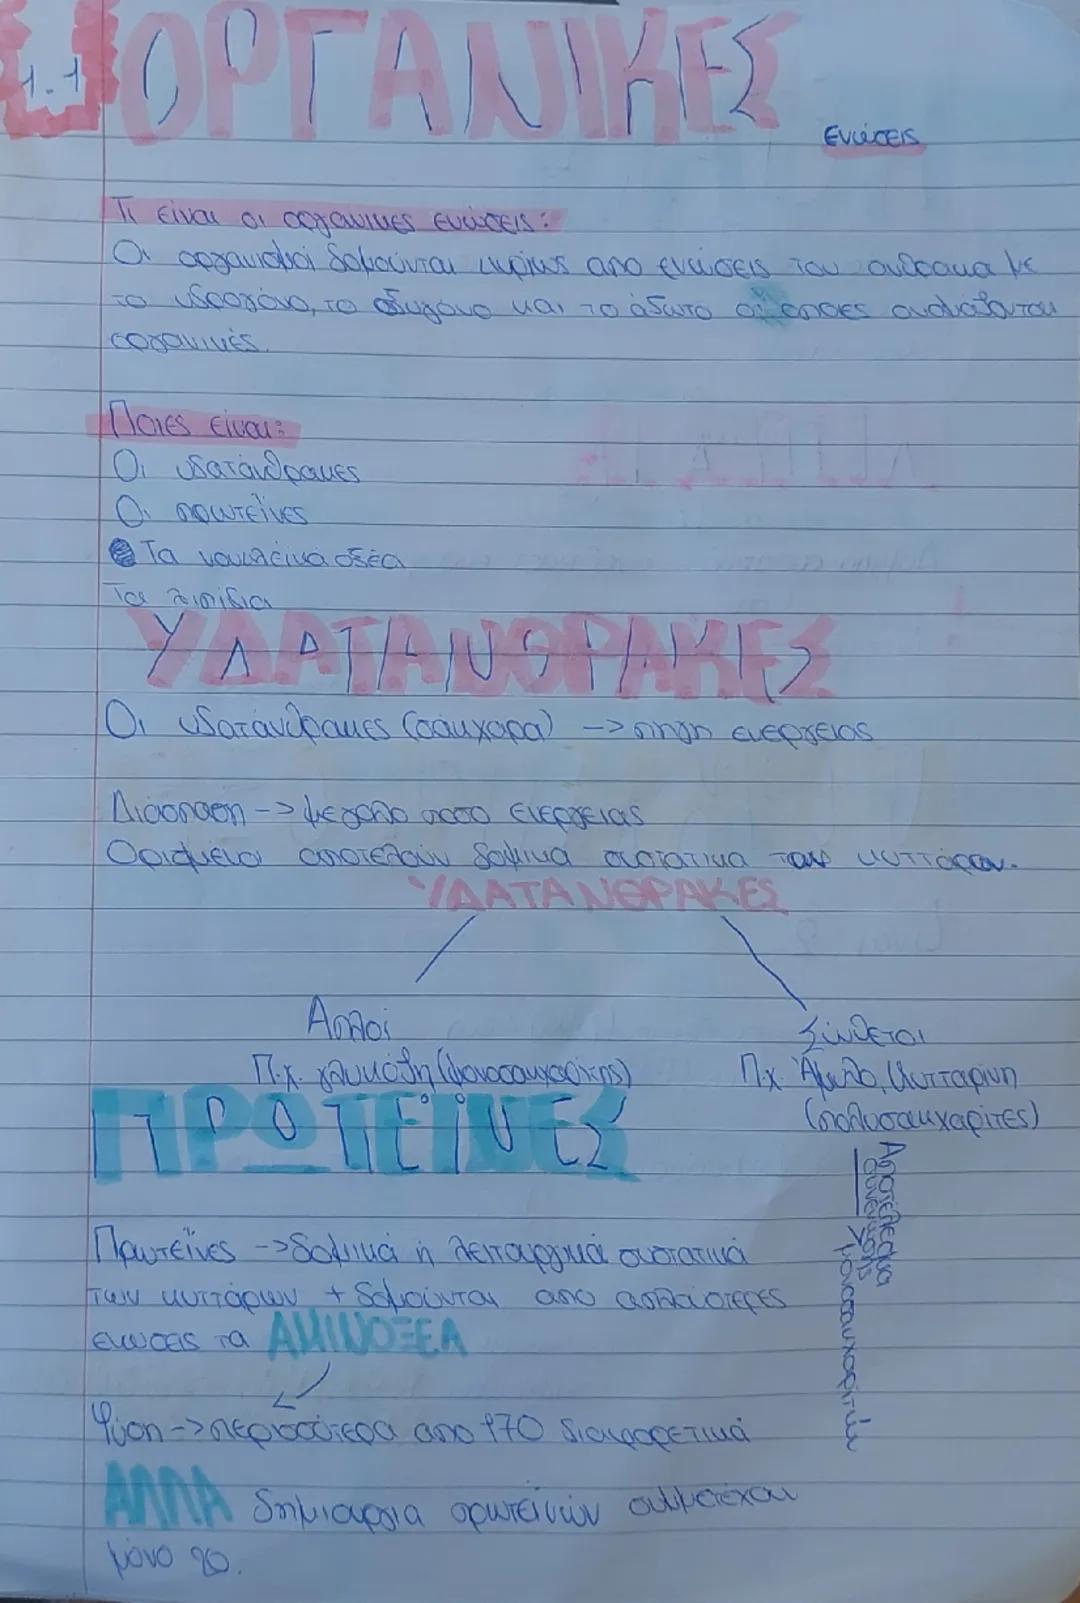 1.1 ΟΡΓΑΝΙΚΕΣ
Ενώσεις
Τι είναι οι οργανικες ενώσεις:
Οι οργανισμοί δομούνται κυρίως απο ενώσεις του ανθρακα με
το υδρογόνο, το οξυγόνο και το άζωτο οι οποιες ονομαζονται
οργανικές.
Ποιες είναι:
Οι υδατάνθρακες
Οι πρωτεΐνες
Τα νουκλεϊκά οξέα
Τα λιπίδια
ΥΔΑΤΑΝΘΡΑΚΕΣ
Οι υδατάνθρακες (σάκχαρα) -> πηγη ενεργειας
Διάσπαση -> μεγαλο ποσο ενεργειας
Ορισμενοι αποτελουν δομικα συστατικα των κυττάρων.
ΥΔΑΤΑΝΘΡΑΚΕΣ
Απλοί
Σύνθετοι
Π.χ. γλυκόζη (μονοσακχαρίτης)
Π.χ. Άμυλο, Κυτταρίνη
(πολυσακχαρίτες)
Αποτέλεσμα
συνένωσης
μονοσακχαριτών
ΠΡΩΤΕΪΝΕΣ
Πρωτεΐνες -> δομικά ή λειτουργικά συστατικά
των κυττάρων + δομούνται απο απλούστερες
ενωσεις τα ΑΜΙΝΟΞΕΑ
Φύση -> περισσότερα απο 170 διαφορετικά
ΑΛΛΑ δημιουργια πρωτεϊνών συμμετέχουν
μόνο 20.